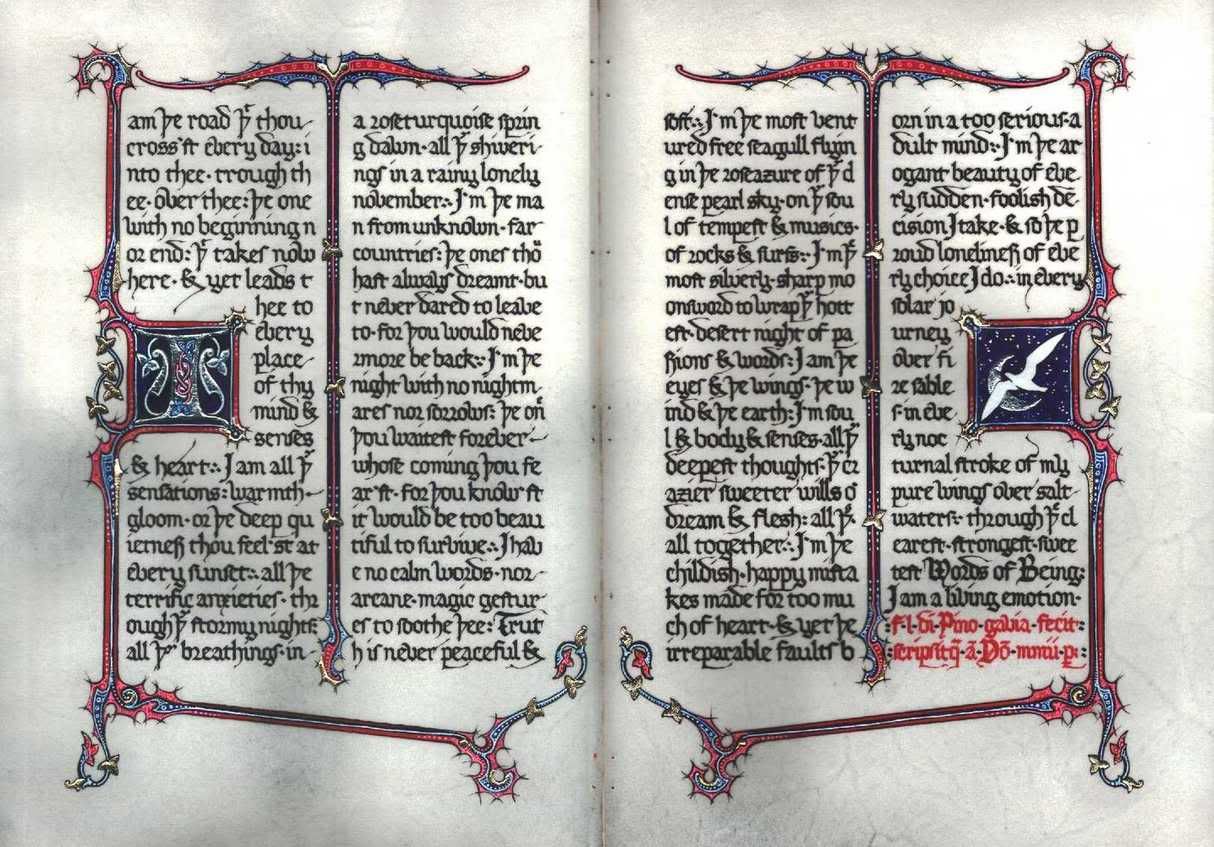 I
am þe road þͭ thou
cross'st every day: i
nto thee · trough th
ee · over thee: þe one
with no beginning n
or end: þͭ takes now
here · & yet leads t
hee to
every
place
of thy
mind &
senses
& heart: I am all þͤ
sensations: warmth
gloom · or þe deep qu
ietness thou feel'st at
every sunset: all þe
terrific anxieties · thr
ough þͤ stormy nights:
all þͤ breathings · in
a rose turquoise sprin
g dawn · all þͤ shiveri
ngs in a rainy lonely
november: I'm þe ma
n from unknown · far
countries: þe ones thoͧ
hast always dreamt · bu
t never dared to leave
to · for þou would neve
rmore be back: I'm þe
night with no nightm
ares nor sorrows: þe on̄
þou waitest forever
whose coming þou fe
ar'st · for þou know'st
it would be too beau
tiful to survive: I hav
e no calm words · nor
arcane · magic gestur
es to soothe þee: Trut
h is never peaceful &
soft: I'm þe most vent
ured free seagull flyin
g in þe rose azure of þͤ d
ense pearl sky · on þͤ sou
l of tempest & musics ·
of rocks & surfs: I'm þͤ
most silvery · sharp mo
onsword to wrap þͤ hott
est · desert night of pa
ssions & words: I am þe
eyes & þe wings · þe w
ind & þe earth: I'm sou
l & body & senses · all þͤ
deepest thoughts · þͤ cr
azier sweeter wills o
dream & flesh: all þͭ ·
all together: I'm þe
childish · happy mista
kes made for too mu
ch of heart · & yet þe
irreparable faults b
orn in a too serious · a
dult mind: I'm þe ar
ogant beauty of eve
ry sudden · foolish de
cision I take · & so þe p
roud loneliness of eve
ry choice I do: in every
solar jo
urney
over fi
re sable
s · in eve
ry noc
turnal stroke of my
pure wings over salt
waters: through þͤ cl
earest · strongest · swee
test Words of Being:
I am a living emotion ·
f · l · di · Pino · gavia · fecit ·
scripsitq̄ · ā · Dō · mmii · p: